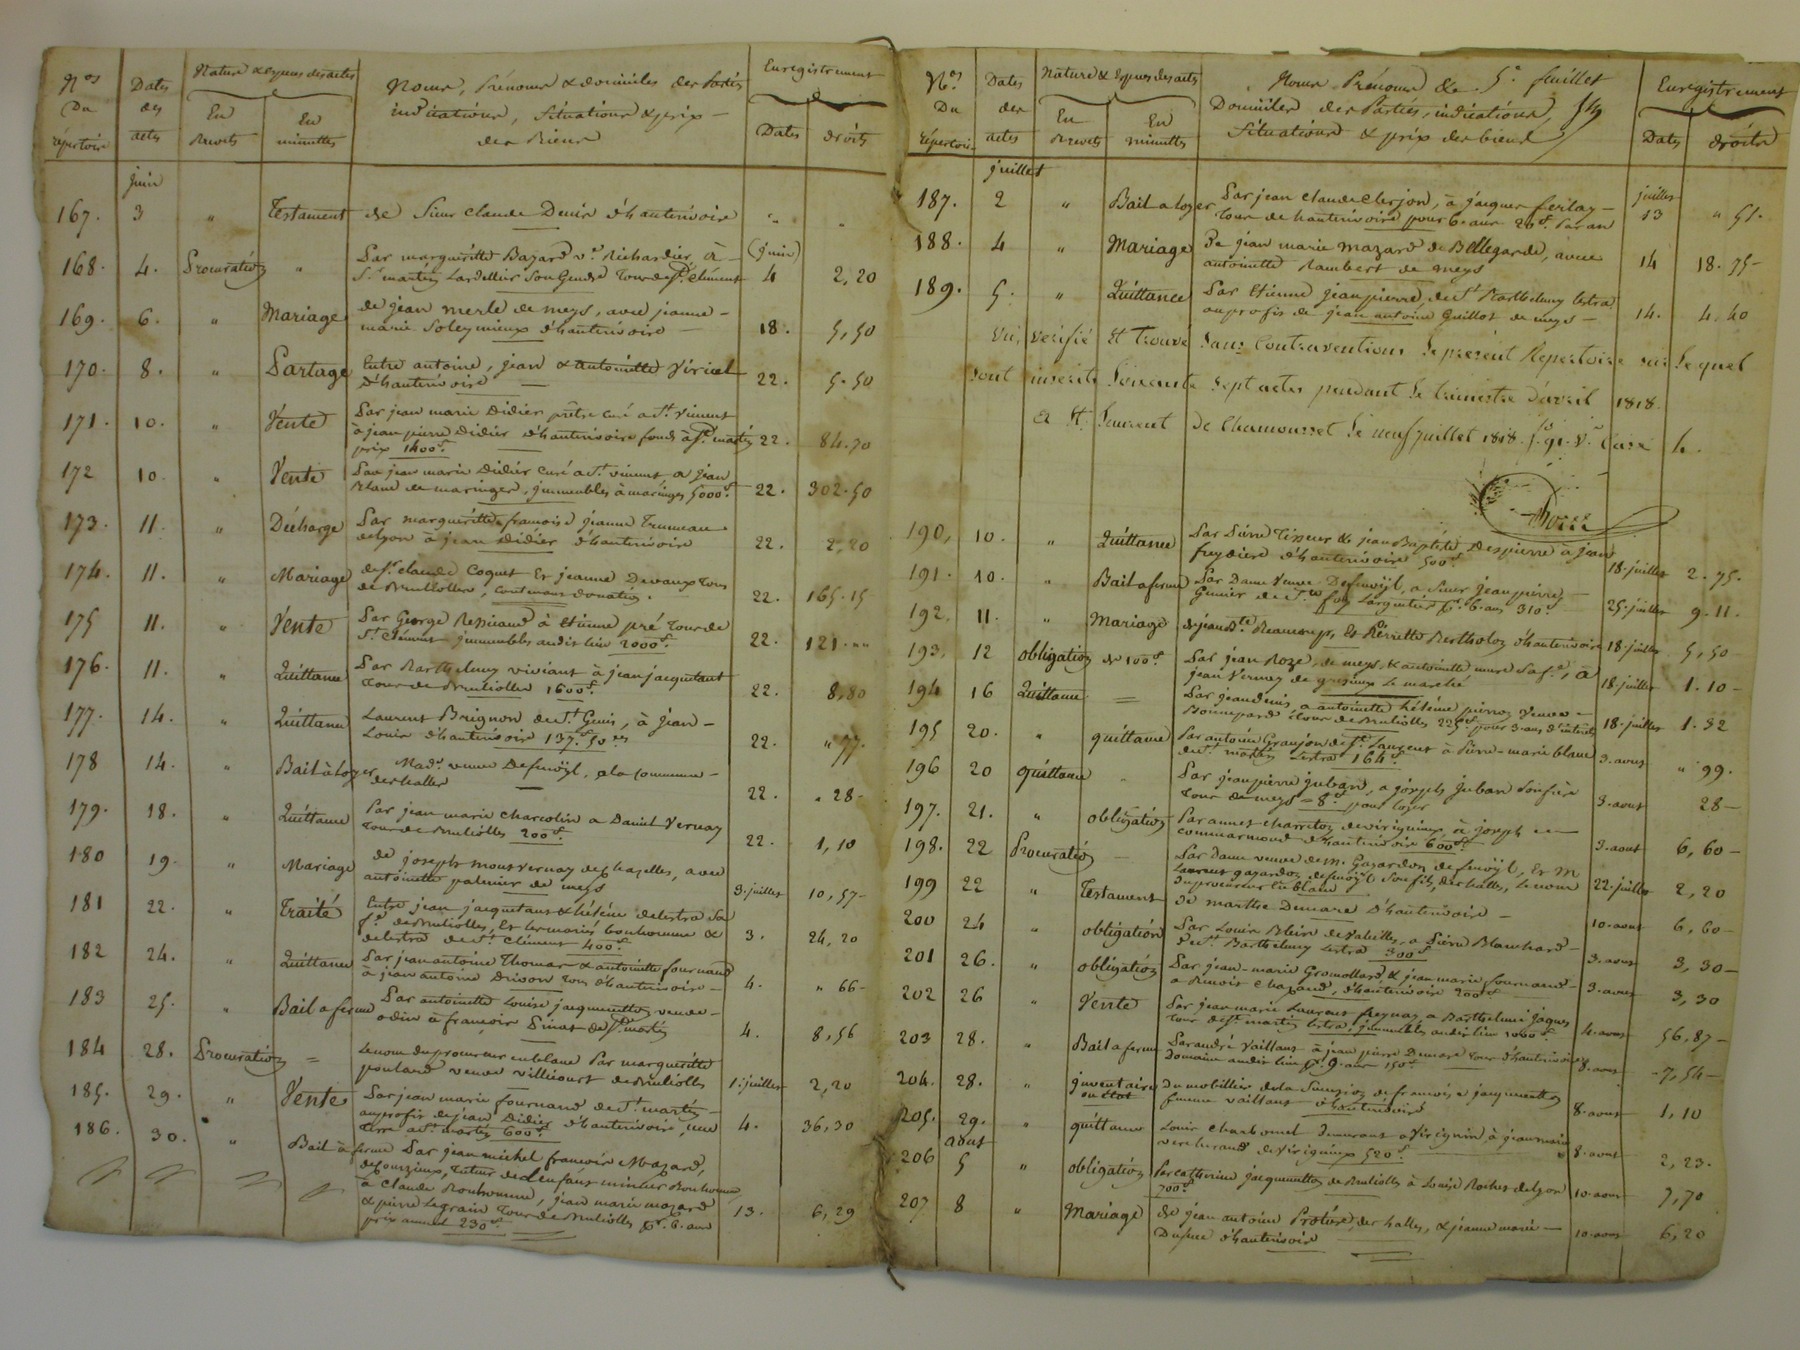 Nos Du répertoire
Dates des actes
Nature & Espèces des actes
En Brevets
En minuttes
Noms, Prénoms & domiciles des Parties
indications, Situations & prix
des Biens
Enregistrement
Dates
droits
juin
167. 3 " Testament de Sieur Claude Denis d'hauterivoire " "
168. 4. Procuration " Par margueritte Bazard ve. Richardier, à (juin)
St. martin Lardellier Son Gendre Tous de St. Clément 4 2,20
169. 6. " Mariage de jean merle de meys, avec jeanne
marie Soleymieux d'hauterivoire 18. 5,50
170. 8. " Partage Entre antoine, jean & antoinette Viricel
d'hauterivoire 22. 5.50
171. 10. " Vente Par jean marie Didier prêtre curé a St. Vincent
à jean pierre Didier d'hauterivoire fonds à St. martin 22. 84.70
prix 1400f.
172 10. " Vente Par jean marie Didier curé a St. vincent a jean
Blanc de maringes, immeubles à maringes 5000f. 22. 302.50
173. 11. " Décharge Par margueritte françoise jeanne
de Lyon à jean Didier d'hauterivoire 22. 2,20
174. 11. " Mariage de St. claude Coquet Et jeanne Devaux Tous
de Brulliolles, Contenant donation. 22. 165.15
175 11. " Vente Par George Ressicaud à Etienne pré Tous de
St. Clément immeubles audit lieu 2000f. 22. 121.""
176. 11. " Quittance Par Barthelemy viviant à jean jacquetant
Tous de Brulliolles 1600f. 22. 8,80
177. 14. " Quittance Laurent Brignon de St. Genis, à jean
Louis d'hauterivoire 137f. 50es 22. " 77.
178 14. " Bail à Loyer Made. veuve Desfuvÿl, a la Commune
des halles 22. " 28
179. 18. " Quittance Par jean marie Charcolin a Daniel Vernay
Tous de Brulliolles 200f. 22. 1,10
180 19 " Mariage de joseph mousvernay de chazelles, avec
antoinette palmier de meys 3. juillet 10,57
181 22. " Traité Entre jean jacquetant & hélène delestra Sa
fe. de Brulliolles, Et les mariés bonhomme &
delestra de St. Clément 400f. 3. 24,20
182 24. " Quittance Par jean antoine Thomas & antoinette fournand
à jean antoine Drivon Tous d'hauterivoire 4. " 66
183 25. " Bail a ferme Par antoinette Louise jacquemetton veuve
odin à françois Pinat de St. martin 4. 8,56
184 28. Procuration = Le nom du procureur en blanc Par margueritte
poulard veuve villecourt de Brulliolles 1. juillet 2,20
185. 29. " Vente Par jean marie fournand de St. martin
au profit de jean Didier d'hauterivoire, une 4. 36,30
Terre a St. martin 600f.
186. 30. " Bail à ferme Par jean michel françois Mazard,
de Souzieux, Tuteur de L'enfant mineur Bonhomme
à Claude Bonhomme, jean marie mazard
& pierre Legrain Tous de Brulliolles pr. 6. ans 13. 6,29
prix annuel 230f.
Nos. Du Répertoire
Dates des actes
Nature & Espèces des acts
En Brevets
En minuttes
Noms Prénoms & 5e. feuillet
Domiciles des Parties, indications,
Situations & prix des biens
Enregistrement
Dates
droits
juillet
187. 2 " Bail a loyer Par jean Claude Clerjon, à jacques ferlay juillet
Tous de hauterivoire pour 6 ans 20f. Par an 13 " 51.
188. 4 " Mariage De jean marie mazard de Bellegarde, avec
antoinette Rambert de meys 14 18.75
189. 5. " Quittance Par Etienne jeanpierre de St. Barthelemy Lestra
au profit de jean antoine Guillot de meys 14. 4,40
Vu, vérifié Et Trouvé Sans Contraventions Le présent Répertoire sur Lequel
Sont inscrits Soixante Sept actes pendant Le trimestre d'avril 1818.
a St. Laurent De Chamousset Le neuf juillet 1818.
190. 10. " Quittance Par Pierre Tisseur & jean Baptiste Despierre à jean
freydière d'hauterivoire 500f. 18. juillet 2.75.
191. 10. " Bail a ferme Par Dame Veuve Desfuvÿl, a Sieur jean pierre
de Ste. foy Largentière pr. 6. ans 310f. 25. juillet 9.11.
192. 11. " Mariage de jean Bte. Beaucoup, Et Pierrette Bertholon d'hauterivoire 18. juillet 5,50
193. 12 obligation de 100f. Par jean Roze, de meys & antoinette mure Sa fe., à
jean Vernay de grezieux Le marché 18. juillet 1.10
194 16 Quittance = Par jean denis, a antoinette hélène pierron veuve
Bonnepard Tous de Brulliolles 225f. pour 3 ans d'intérêts 18. juillet 1.32
195 20. " quittance Par antoine Granjon de St. Laurent à Pierre-marie blanc
de St. martin Lestra 164f. 3. aoust " 99.
196 20 quittance Par jean pierre juban, a joseph juban Son frère
Tous de meys = 8f. pour loyer 3. aoust 28
197. 21. " obligation Par annet charreton de virigneux, à joseph
commarmond d'hauterivoire 600f. 3. aout 6,60
198. 22 Procuration Par Dame veuve de m. Gazardon desfuvÿl, Et M
Laurent gazardon desfuvÿl Son fils, des halles, Le nom
du procureur En blanc 22. juillet 2,20
199 22 " Testament De marthe Demare d'hauterivoire 10. aout 6,60
200 24 " obligation Par Louis Blein de Valeilles, a Pierre Blanchard
de St. Barthelemy Lestra 300f. 3. aout 3,30
201 26. " obligation Par jean-marie Gromollard & jean marie fournand
a Benoit Chazaud, d'hauterivoire 300f. 3. aout 3,30
202 26 " Vente Par jean marie Laurent freynay, a Barthelemi jaques
Tous de St. martin Lestra, immeubles audit lieu 1000f. 4. aout 56,87
203 28. " Bail a ferme Par andré Vaillant à jean pierre Demare Tous d'hauterivoire,
Domaine audit lieu pr. 9. ans 150f. 8. aout 7,54
204. 28. " inventaire ou État Du mobilier de la Succession de françoise jacquemetton
femme vaillant d'hauterivoire 8. aout 1,10
205. 29. " quittance Louis Charbonnel Demeurant a Virignin à jean marie
vercherand de Virigneux 520f. 8. aout 2,23.
aout
206 5 " obligation Par catherine jacquemetton de Brulliolles à Louise Rochet de Lyon
700f. 10. aout 7,70
207 8 " Mariage de jean antoine Protière, des halles, & jeanne marie
Dupuee d'hauterivoire 10. aout 6,20